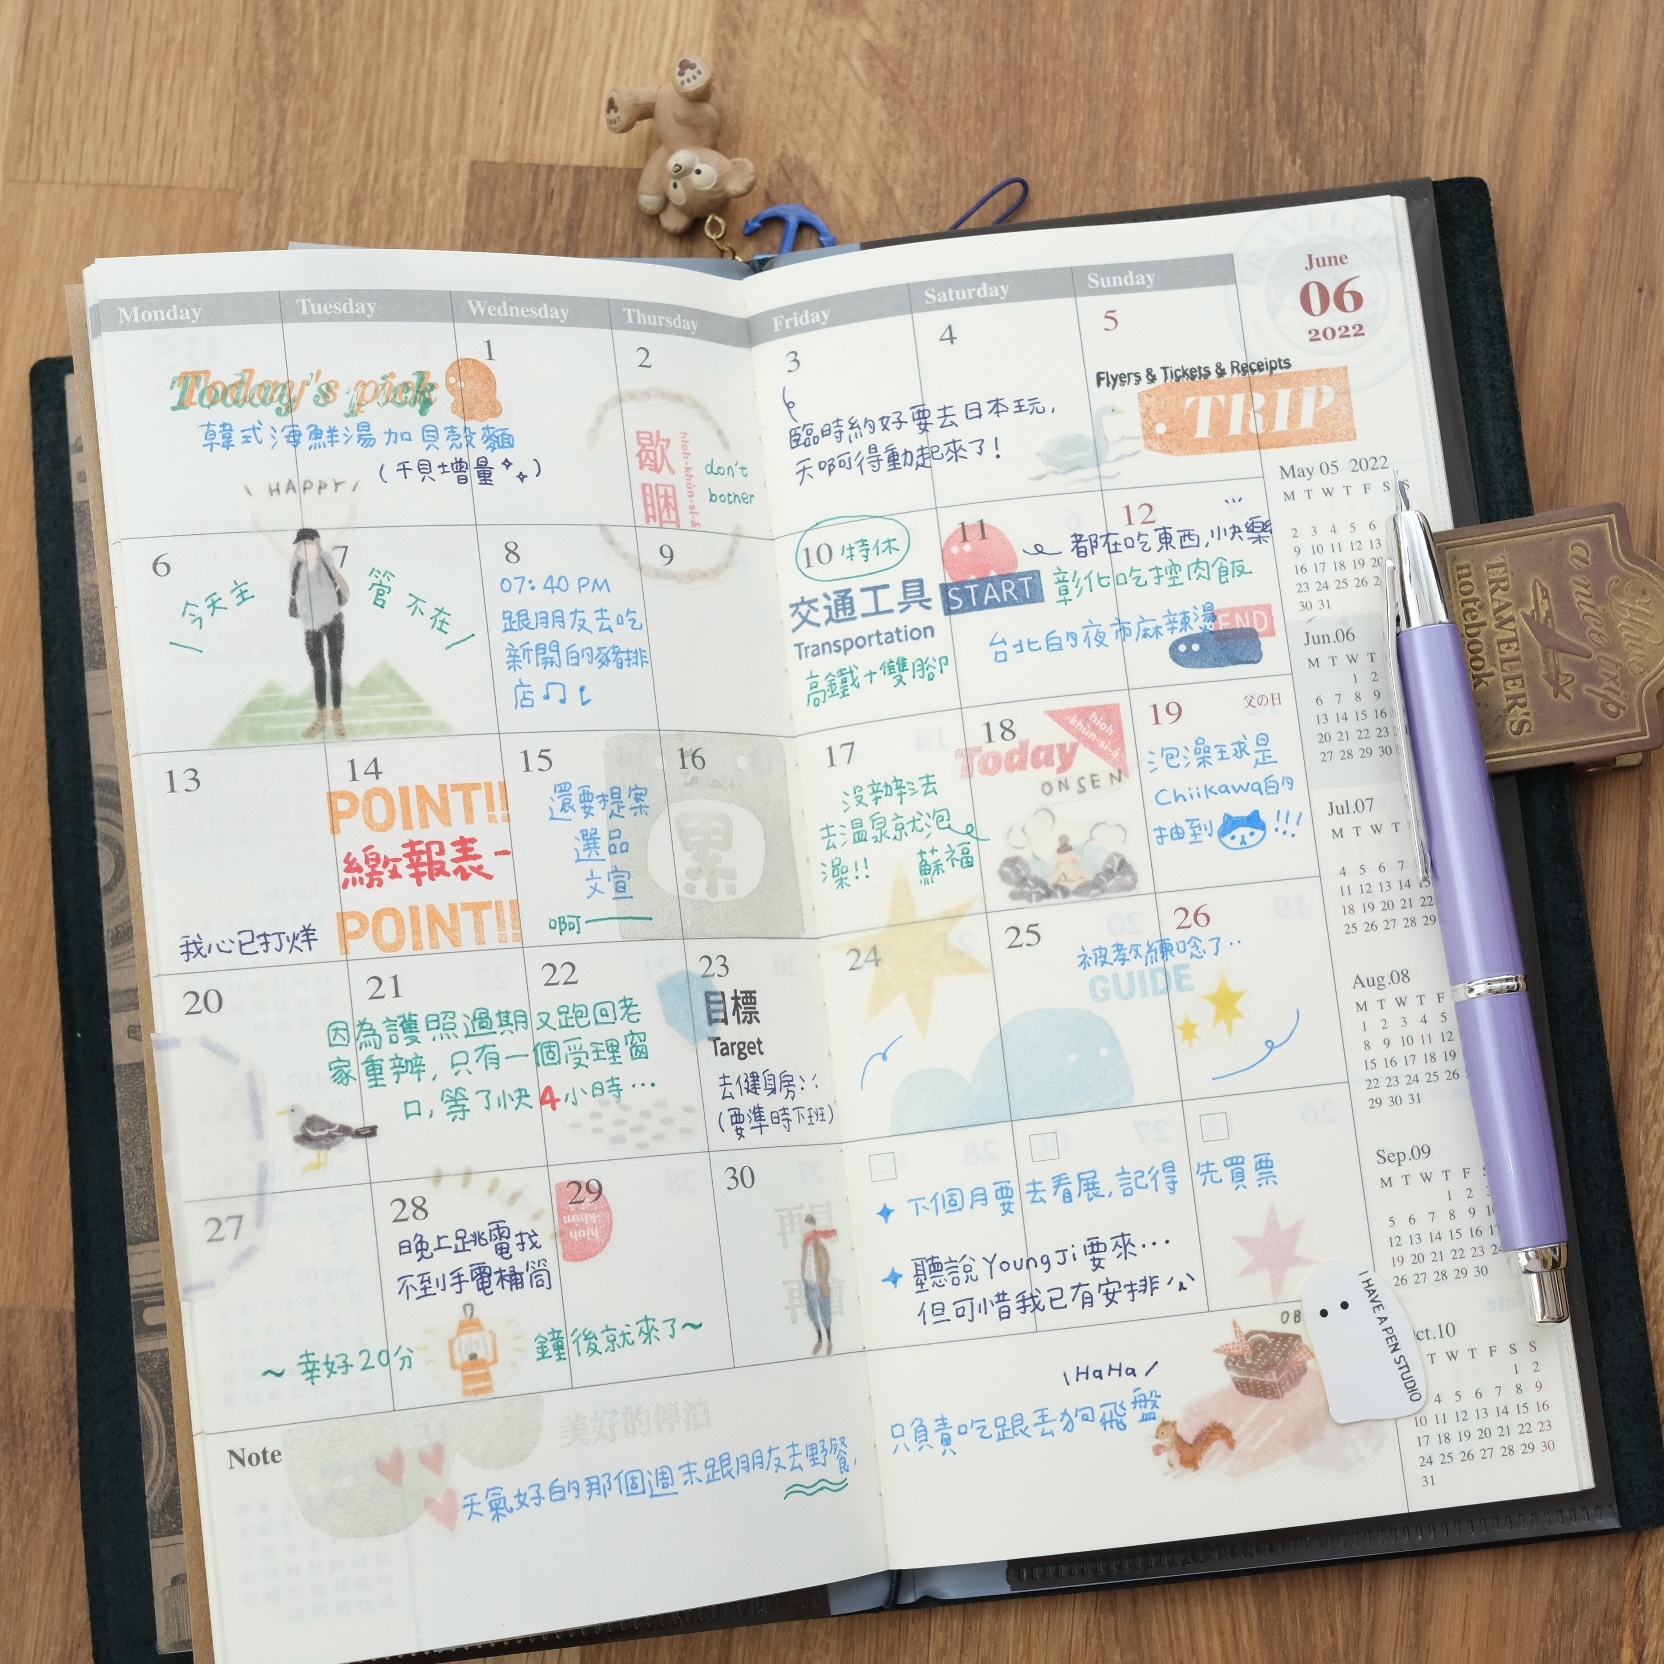 Monday
Tuesday
Wednesday
Thursday
Friday
Saturday
Sunday
June
06
2022
1
2
3
4
5
Today's pick
韓式海鮮湯加貝殼麵
(干貝增量)
HAPPY
歇睏
hioh-khùn-si-á
don't
bother
臨時約好要去日本玩,
天啊得動起來了!
Flyers & Tickets & Receipts
TRIP
6
7
8
9
10 特休
11
12
今天主
管不在
07:40 PM
跟朋友去吃
新開的豬排
店
交通工具
Transportation
高鐵+雙腳
START
都在吃東西,快樂
彰化吃控肉飯
台北的夜市麻辣燙
END
13
14
15
16
17
18
19
父の日
我心已打烊
POINT!!
繳報表-
POINT!!
還要提案
選品
文宣
啊
累
沒辦法
去溫泉就泡
澡!! 蘇福
Today
hioh-khùn-si-á
ONSEN
泡澡球是
Chiikawa的
抽到 !!!
20
21
22
23
24
25
26
因為護照過期又跑回老
家重辦,只有一個受理窗
口,等了快4小時…
目標
Target
去健身房
(要準時下班)
被教練唸了..
GUIDE
27
28
29
30
晚上跳電找
不到手電桶筒
~幸好20分
鐘後就來了~
hioh-khùn
下個月要去看展,記得先買票
聽說YoungJi要來…
但可惜我已有安排
Note
美好的停泊
天氣好的那個週末跟朋友去野餐,
HaHa
只負責吃跟丟狗飛盤
08
I HAVE A PEN STUDIO
May 05 2022
M T W T F S S
2 3 4 5 6
9 10 11 12 13
16 17 18 19 20
23 24 25 26 2
30 31
Jun.06
M T W T
1 2
6 7 8 9
13 14 15 16
20 21 22 23
27 28 29 30
Jul.07
M T W T
4 5 6 7
11 12 13 14
18 19 20 21
25 26 27 28
Aug.08
M T W T F
1 2 3 4 5
8 9 10 11
15 16 17 18
22 23 24 25
29 30 31
Sep.09
M T W T F S
1 2 3
5 6 7 8 9
12 13 14 15
19 20 21 22
26 27 28 29 30
ct.10
T W T F S S
1 2
4 5 6 7 8 9
10 11 12 13 14 15 16
17 18 19 20 21 22 23
24 25 26 27 28 29 30
31
TRAVELER'S
notebook
a nice trip